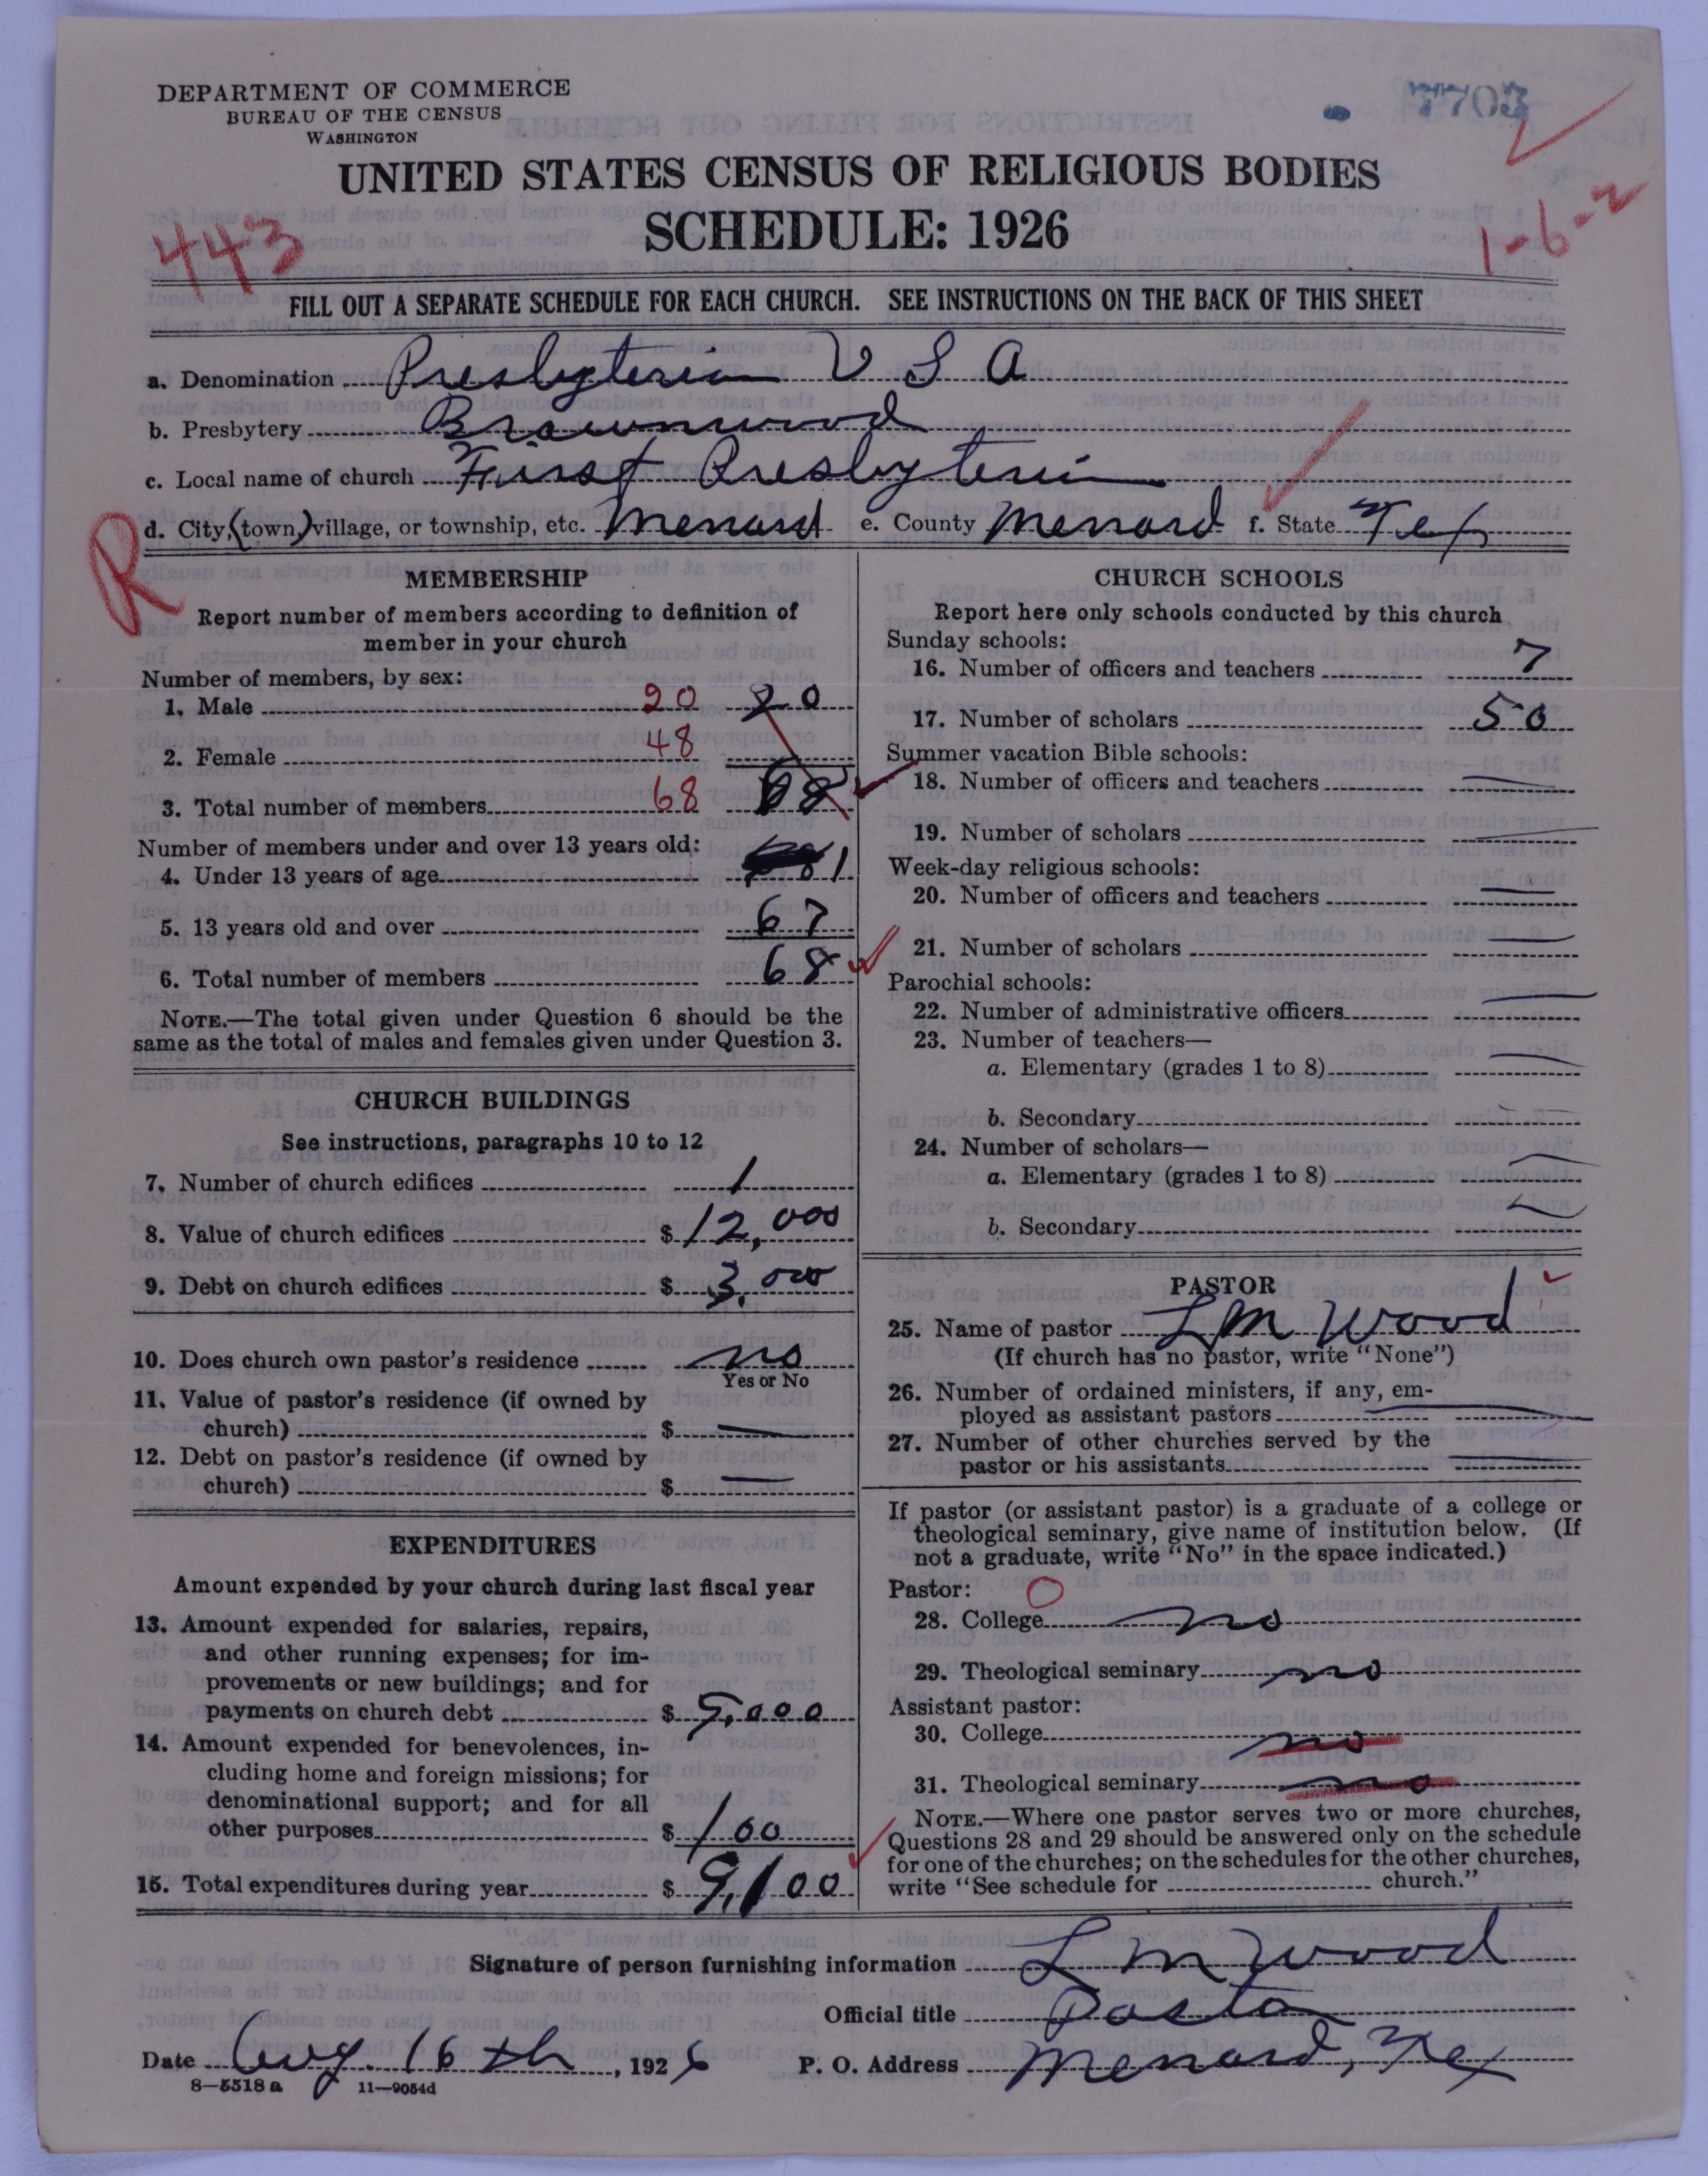 DEPARTMENT OF COMMERCE
BUREAU OF THE CENSUS
WASHINGTON
7703
UNITED STATES CENSUS OF RELIGIOUS BODIES
SCHEDULE: 1926
443
1-6-2
FILL OUT A SEPARATE SCHEDULE FOR EACH CHURCH. SEE INSTRUCTIONS ON THE BACK OF THIS SHEET
a. Denomination Presbyterian U S A
b. Presbytery Brownwood
c. Local name of church First Presbyterian
d. City, (town,) village, or township, etc. Menard e. County Menard f. State Tex
R
MEMBERSHIP
Report number of members according to definition of
member in your church
Number of members, by sex:
1. Male 20 20
2. Female 48
3. Total number of members 68 68
Number of members under and over 13 years old:
4. Under 13 years of age 1
5. 13 years old and over 67
6. Total number of members 68
NOTE.—The total given under Question 6 should be the
same as the total of males and females given under Question 3.
CHURCH BUILDINGS
See instructions, paragraphs 10 to 12
7. Number of church edifices 1
8. Value of church edifices $ 12,000
9. Debt on church edifices $ 3,000
10. Does church own pastor's residence no
Yes or No
11. Value of pastor's residence (if owned by
church) $ —
12. Debt on pastor's residence (if owned by
church) $ —
EXPENDITURES
Amount expended by your church during last fiscal year
13. Amount expended for salaries, repairs,
and other running expenses; for im-
provements or new buildings; and for
payments on church debt $ 9,000
14. Amount expended for benevolences, in-
cluding home and foreign missions; for
denominational support; and for all
other purposes $ 100
15. Total expenditures during year $ 9,100
CHURCH SCHOOLS
Report here only schools conducted by this church
Sunday schools:
16. Number of officers and teachers 7
17. Number of scholars 50
Summer vacation Bible schools:
18. Number of officers and teachers —
19. Number of scholars —
Week-day religious schools:
20. Number of officers and teachers —
21. Number of scholars —
Parochial schools:
22. Number of administrative officers —
23. Number of teachers—
a. Elementary (grades 1 to 8) —
b. Secondary —
24. Number of scholars—
a. Elementary (grades 1 to 8) —
b. Secondary —
PASTOR
25. Name of pastor L M Wood
(If church has no pastor, write "None")
26. Number of ordained ministers, if any, em-
ployed as assistant pastors —
27. Number of other churches served by the
pastor or his assistants —
If pastor (or assistant pastor) is a graduate of a college or
theological seminary, give name of institution below. (If
not a graduate, write "No" in the space indicated.)
Pastor: O
28. College no
29. Theological seminary no
Assistant pastor:
30. College no
31. Theological seminary no
NOTE.—Where one pastor serves two or more churches,
Questions 28 and 29 should be answered only on the schedule
for one of the churches; on the schedules for the other churches,
write "See schedule for church."
Signature of person furnishing information L M Wood
Official title Pastor
Date Aug. 16th, 1926 P. O. Address Menard, Tex
8—5518 a 11—9054d